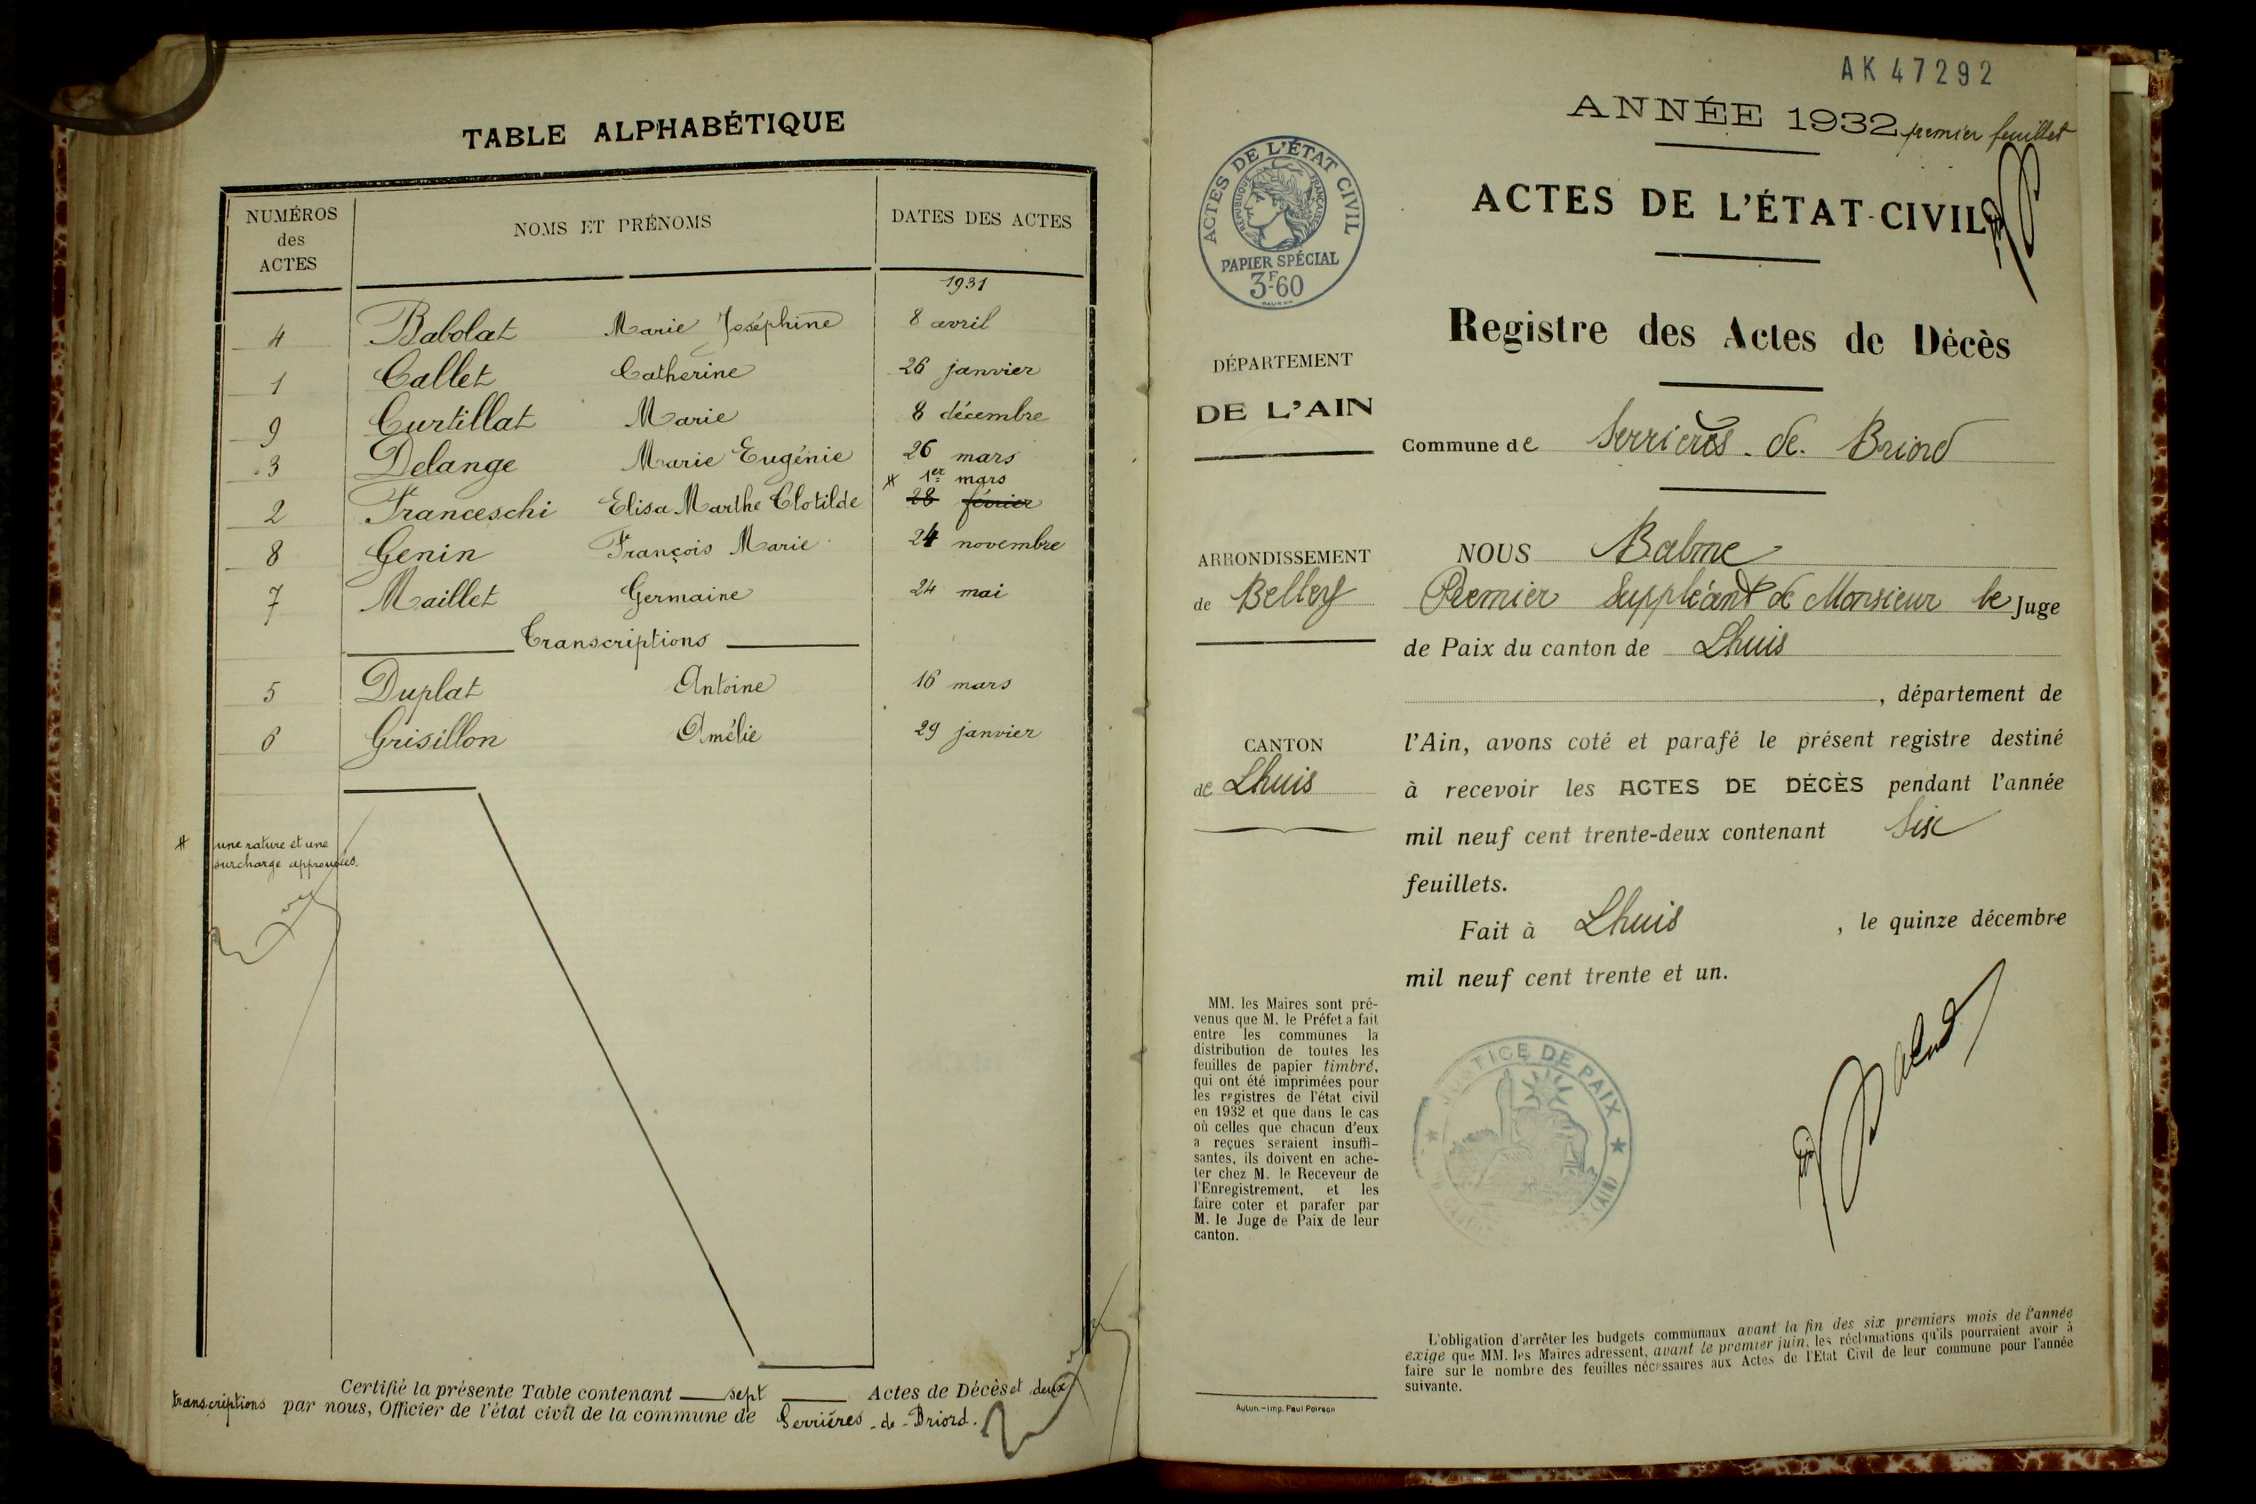 TABLE ALPHABÉTIQUE
NUMÉROS des ACTES NOMS ET PRÉNOMS DATES DES ACTES
1931
4 Babolat Marie Joséphine 8 avril
1 Callet Catherine 26 janvier
9 Curtillat Marie 8 décembre
3 Delange Marie Eugénie 26 mars
# 1er mars
2 Franceschi Elisa Marthe Clotilde 28 février
8 Genin François Marie 24 novembre
7 Maillet Germaine 24 mai
Transcriptions
5 Duplat Antoine 16 mars
6 Grisillon Amélie 29 janvier
# une rature et une
surcharge approuvées.
Certifié la présente Table contenant sept Actes de Décès et deux
transcriptions par nous, Officier de l'état civil de la commune de Serrières-de-Briord.
AK 47292
ANNÉE 1932 premier feuillet
ACTES DE L'ÉTAT CIVIL
RÉPUBLIQUE FRANÇAISE
PAPIER SPÉCIAL
3F60
ACTES DE L'ÉTAT-CIVIL
Registre des Actes de Décès
DÉPARTEMENT
DE L'AIN
Commune de Serrières-de-Briord
ARRONDISSEMENT
de Belley
CANTON
de Lhuis
NOUS Balme
Premier Suppléant de Monsieur le Juge
de Paix du canton de Lhuis
, département de
l'Ain, avons coté et parafé le présent registre destiné
à recevoir les ACTES DE DÉCÈS pendant l'année
mil neuf cent trente-deux contenant Six
feuillets.
Fait à Lhuis , le quinze décembre
mil neuf cent trente et un.
MM. les Maires sont pré-
venus que M. le Préfet a fait
entre les communes la
distribution de toutes les
feuilles de papier timbré,
qui ont été imprimées pour
les registres de l'état civil
en 1932 et que dans le cas
où celles que chacun d'eux
a reçues seraient insuffi-
santes, ils doivent en ache-
ter chez M. le Receveur de
l'Enregistrement, et les
faire coter et parafer par
M. le Juge de Paix de leur
canton.
JUSTICE DE PAIX
(AIN)
Autun.-Imp. Paul Poirson
L'obligation d'arrêter les budgets communaux avant la fin des six premiers mois de l'année
exige que MM. les Maires adressent, avant le premier juin, les réclamations qu'ils pourraient avoir à
faire sur le nombre des feuilles nécessaires aux Actes de l'Etat Civil de leur commune pour l'année
suivante.